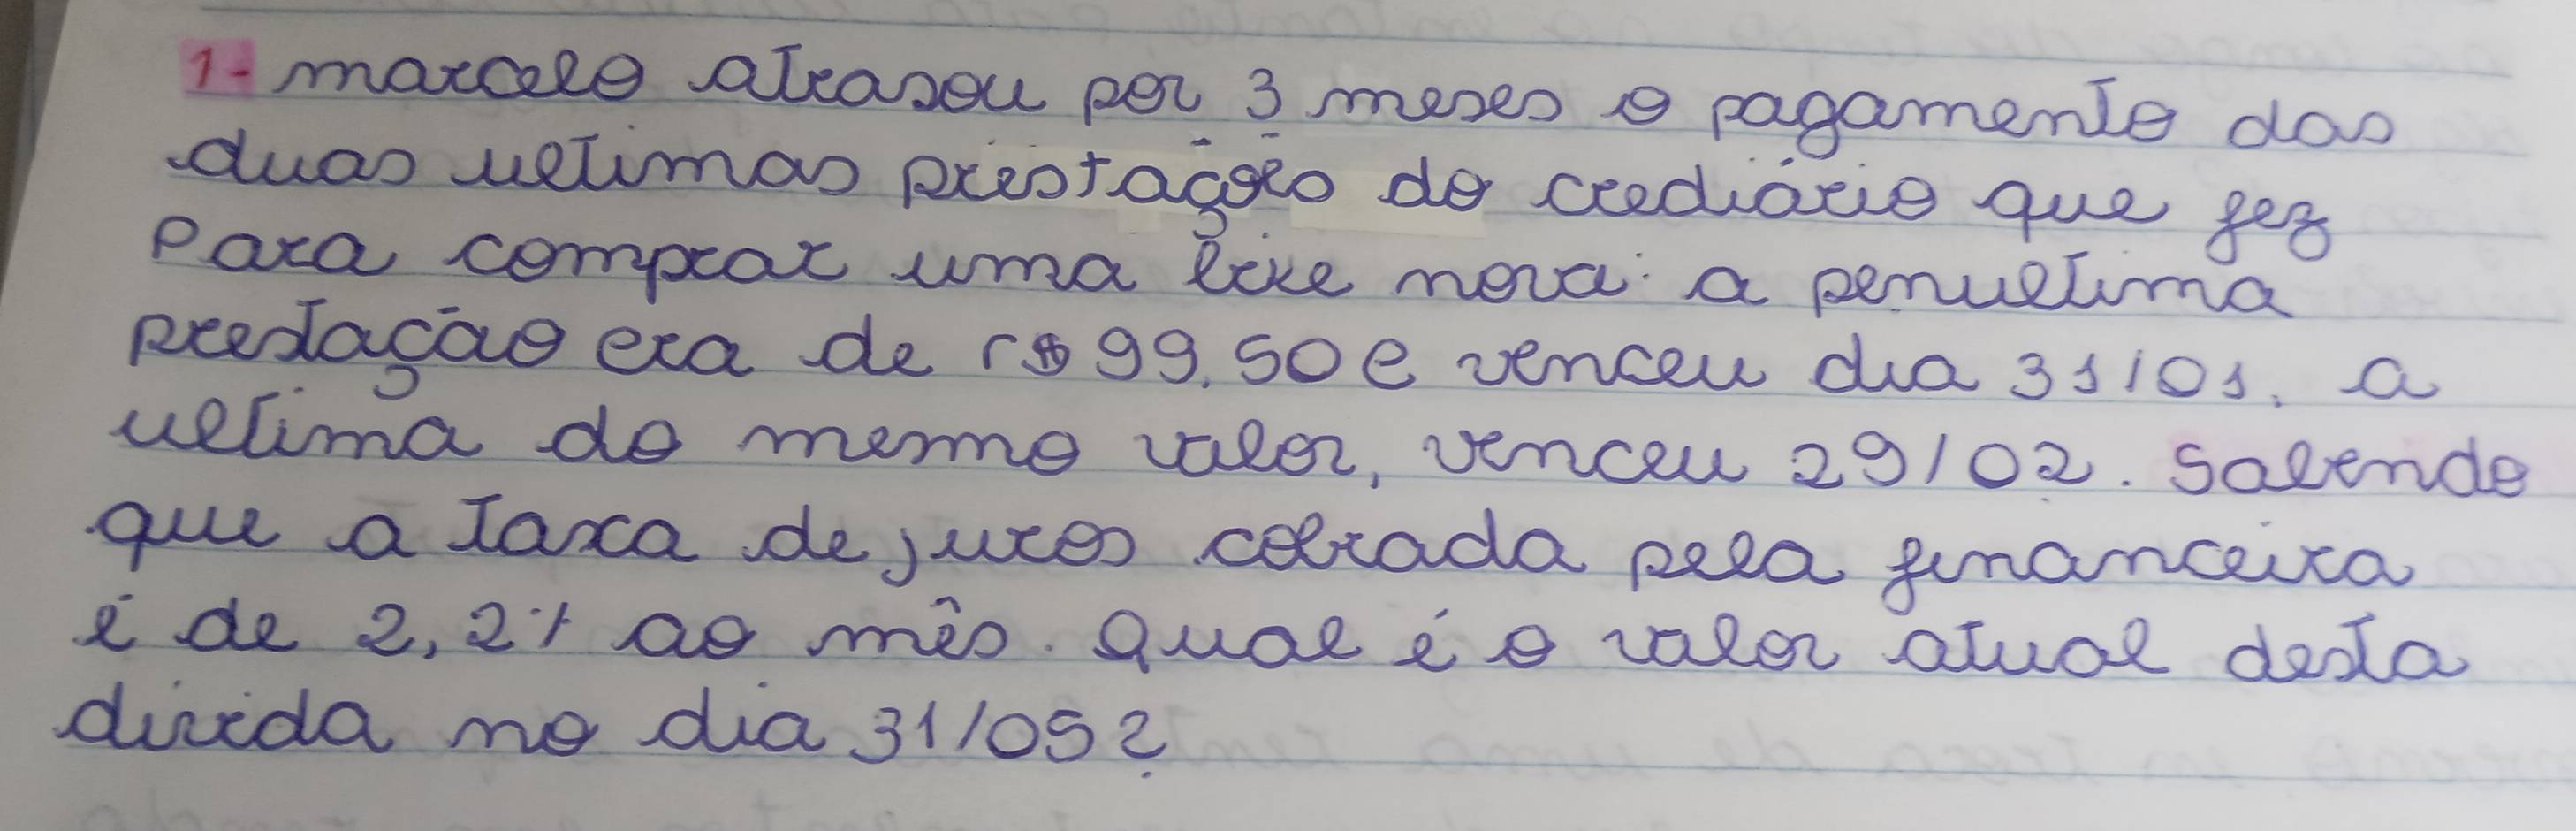 1- marcelo atrasou por 3 meses o pagamento das
duas ultimas prestações do crediário que fez
Para comprar uma bike nova: a penultima
prestação era de r$ 99,50 e venceu dia 31/01. a
ultima do mesmo valor, venceu 29/02. Sabendo
que a taxa de juros cobrada pela financeira
é de 2,2% ao mês. Qual é o valor atual desta
divida no dia 31/05?